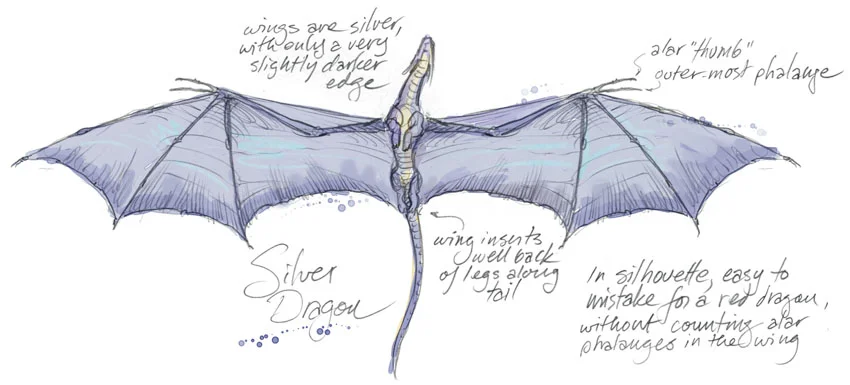 wings are silver,
with only a very
slightly darker
edge
alar "thumb"
outer-most phalange
wing inserts
well back
of legs along
tail
Silver
Dragon
In silhouette, easy to
mistake for a red dragon,
without counting alar
phalanges in the wing